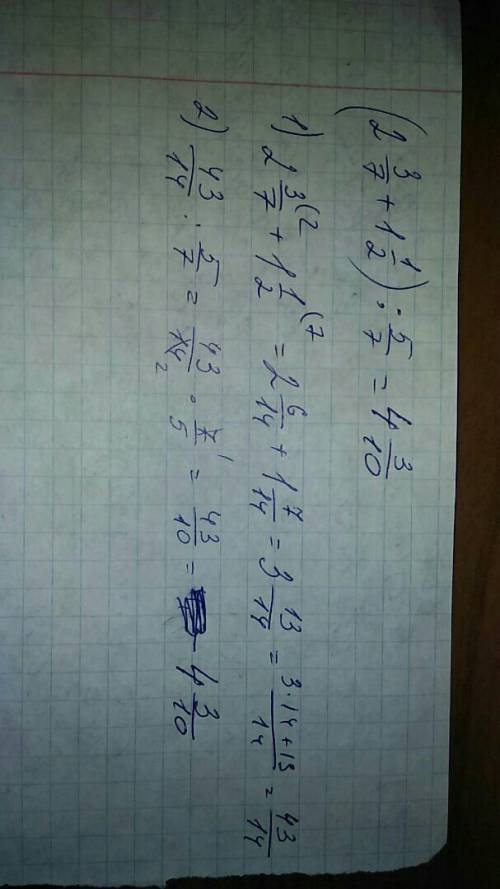 (2 3/7 + 1 1/2) : 5/7 = 4 3/10
1) 2 3/7 (2 + 1 1/2 (7 = 2 6/14 + 1 7/14 = 3 13/14 = (3·14+13)/14 = 43/14
2) 43/14 : 5/7 = 43/14 2 · 7 1/5 = 43/10 = 4 3/10